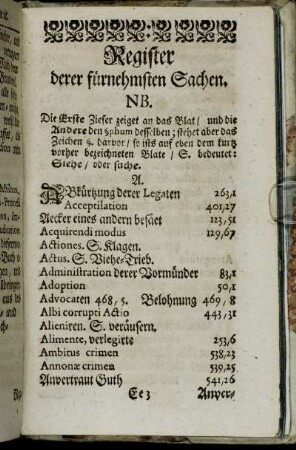 Register
derer fürnehmsten Sachen.
NB.
Die Erste Zieser zeiget an das Blat / und die
Andere den §phum desselben; stehet aber das
Zeichen §. darvor / so ists auf eben dem kurtz
vorher bezeichneten Blate / S. bedeutet:
Siehe / oder suche.
A.
ABkürtzung derer Legaten 263,1
Acceptilation 401,27
Aecker eines andern besäet 123,51
Acquirendi modus 129,67
Actiones. S. Klagen.
Actus. S. Viehe-Trieb.
Administration derer Vormünder 83,1
Adoption 50,1
Advocaten 468, 5. Belohnung 469, 8
Albi corrupti Actio 443,31
Alieniren. S. veräusern.
Alimente, verlegirte 253,6
Ambitus crimen 538,23
Annonæ crimen 539,25
Anvertraut Guth 541,26
Ee 3 Anver-